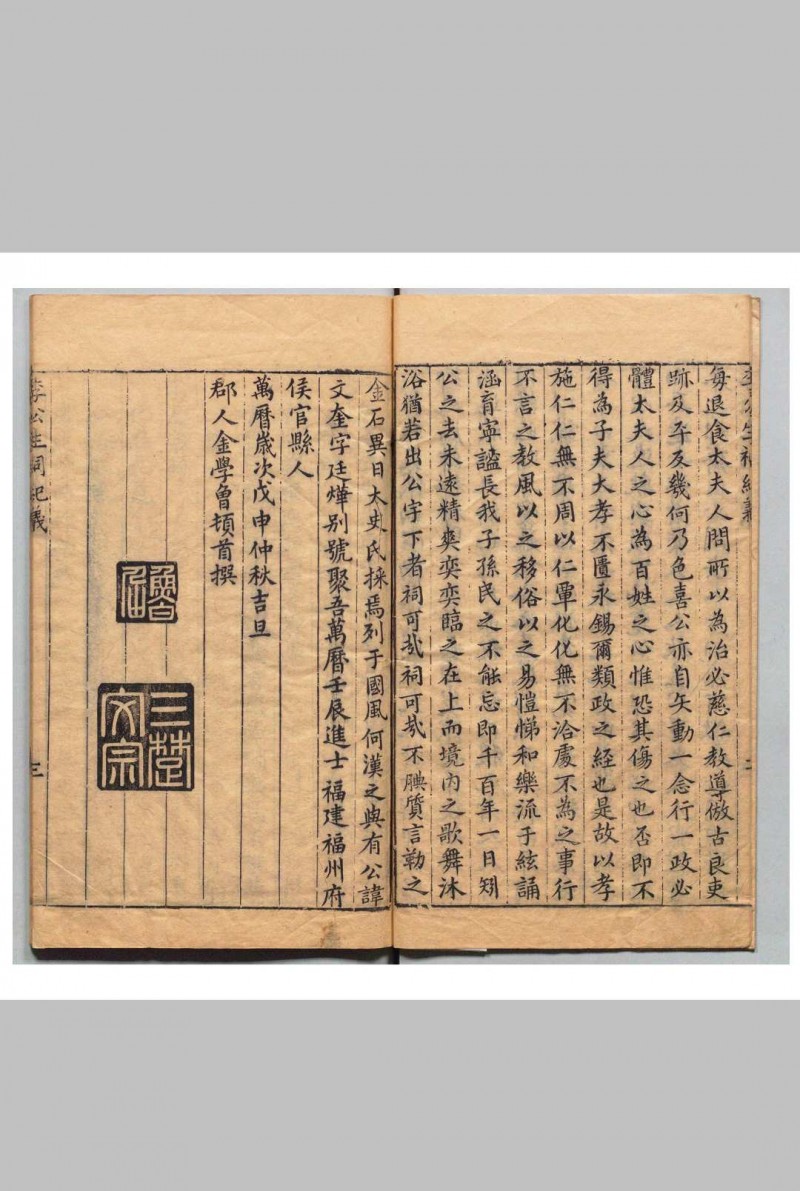 李公生祠紀義
每退食太夫人問所以為治必慈仁教導倣古良吏
跡及平反幾何乃色喜公亦自矢動一念行一政必
體太夫人之心為百姓之心惟恐其傷之也否即不
得為子夫大孝不匱永錫爾類政之経也是故以孝
施仁仁無不周以仁覃化化無不洽處不為之事行
不言之教風以之移俗以之易愷悌和樂流于絃誦
涵育寧謐長我子孫民之不能忘即千百年一日矧
公之去未遠精爽奕奕臨之在上而境內之歌舞沐
浴猶若出公字下者祠可㢤祠可㢤不腆質言勒之
二
金石異日太史氏採焉列于國風何漢之與有公諱
文奎字廷燁别號聚吾萬曆壬辰進士福建福州府
侯官縣人
萬曆歲次戊申仲秋吉旦
郡人金學曾頓首撰
三楚文宗
李公生祠紀義
三